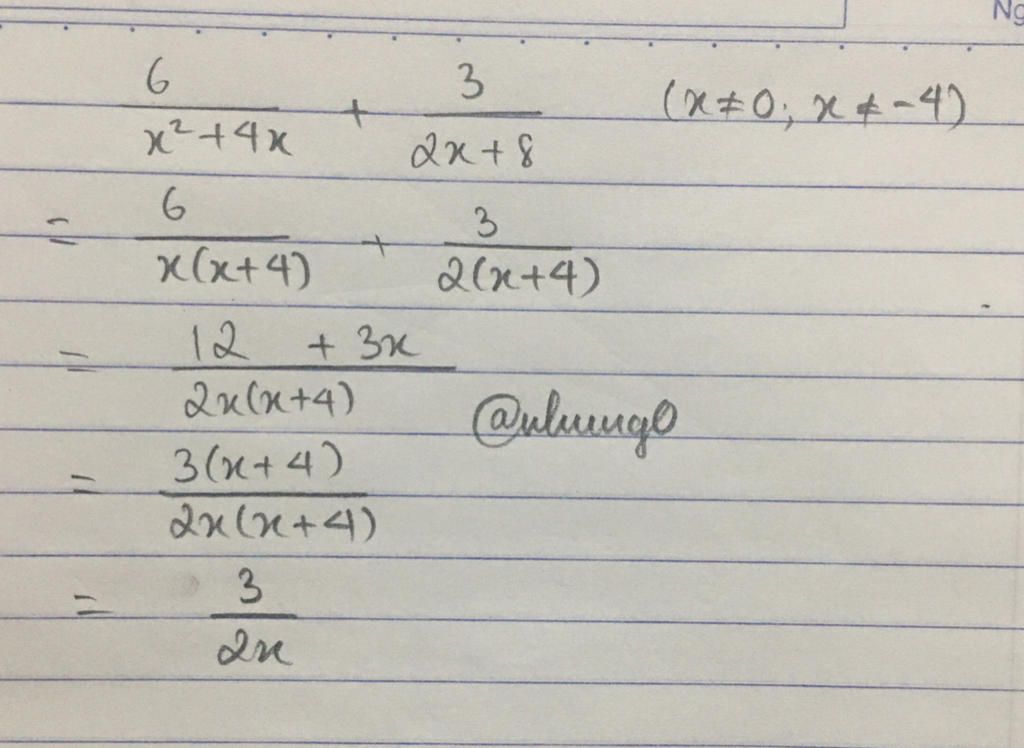 Ng
6/(x²+4x) + 3/(2x+8) (x≠0; x≠-4)
= 6/(x(x+4)) + 3/(2(x+4))
= (12 + 3x)/(2x(x+4))
= 3(x+4)/(2x(x+4))
= 3/(2x)